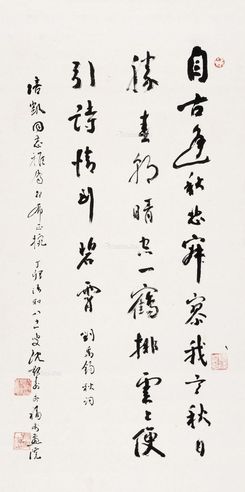 自古逢秋悲寂寥我言秋日
胜春朝晴空一鹤排云上便
引诗情到碧霄 刘禹锡秋词
培凯同志雅属 正腕 八十一叟沈